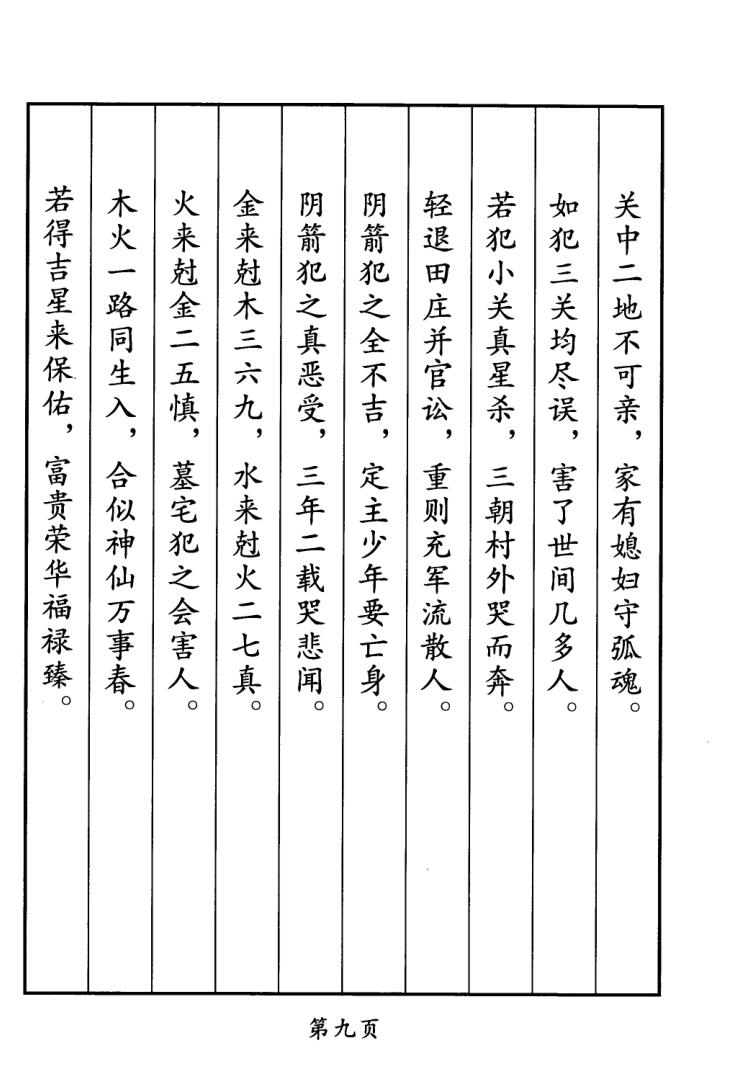 关中二地不可亲，家有媳妇守弧魂。
如犯三关均尽误，害了世间几多人。
若犯小关真星杀，三朝村外哭而奔。
轻退田庄并官讼，重则充军流散人。
阴箭犯之全不吉，定主少年要亡身。
阴箭犯之真恶受，三年二载哭悲闻。
金来尅木三六九，水来尅火二七真。
火来尅金二五慎，墓宅犯之会害人。
木火一路同生入，合似神仙万事春。
若得吉星来保佑，富贵荣华福禄臻。
第九页